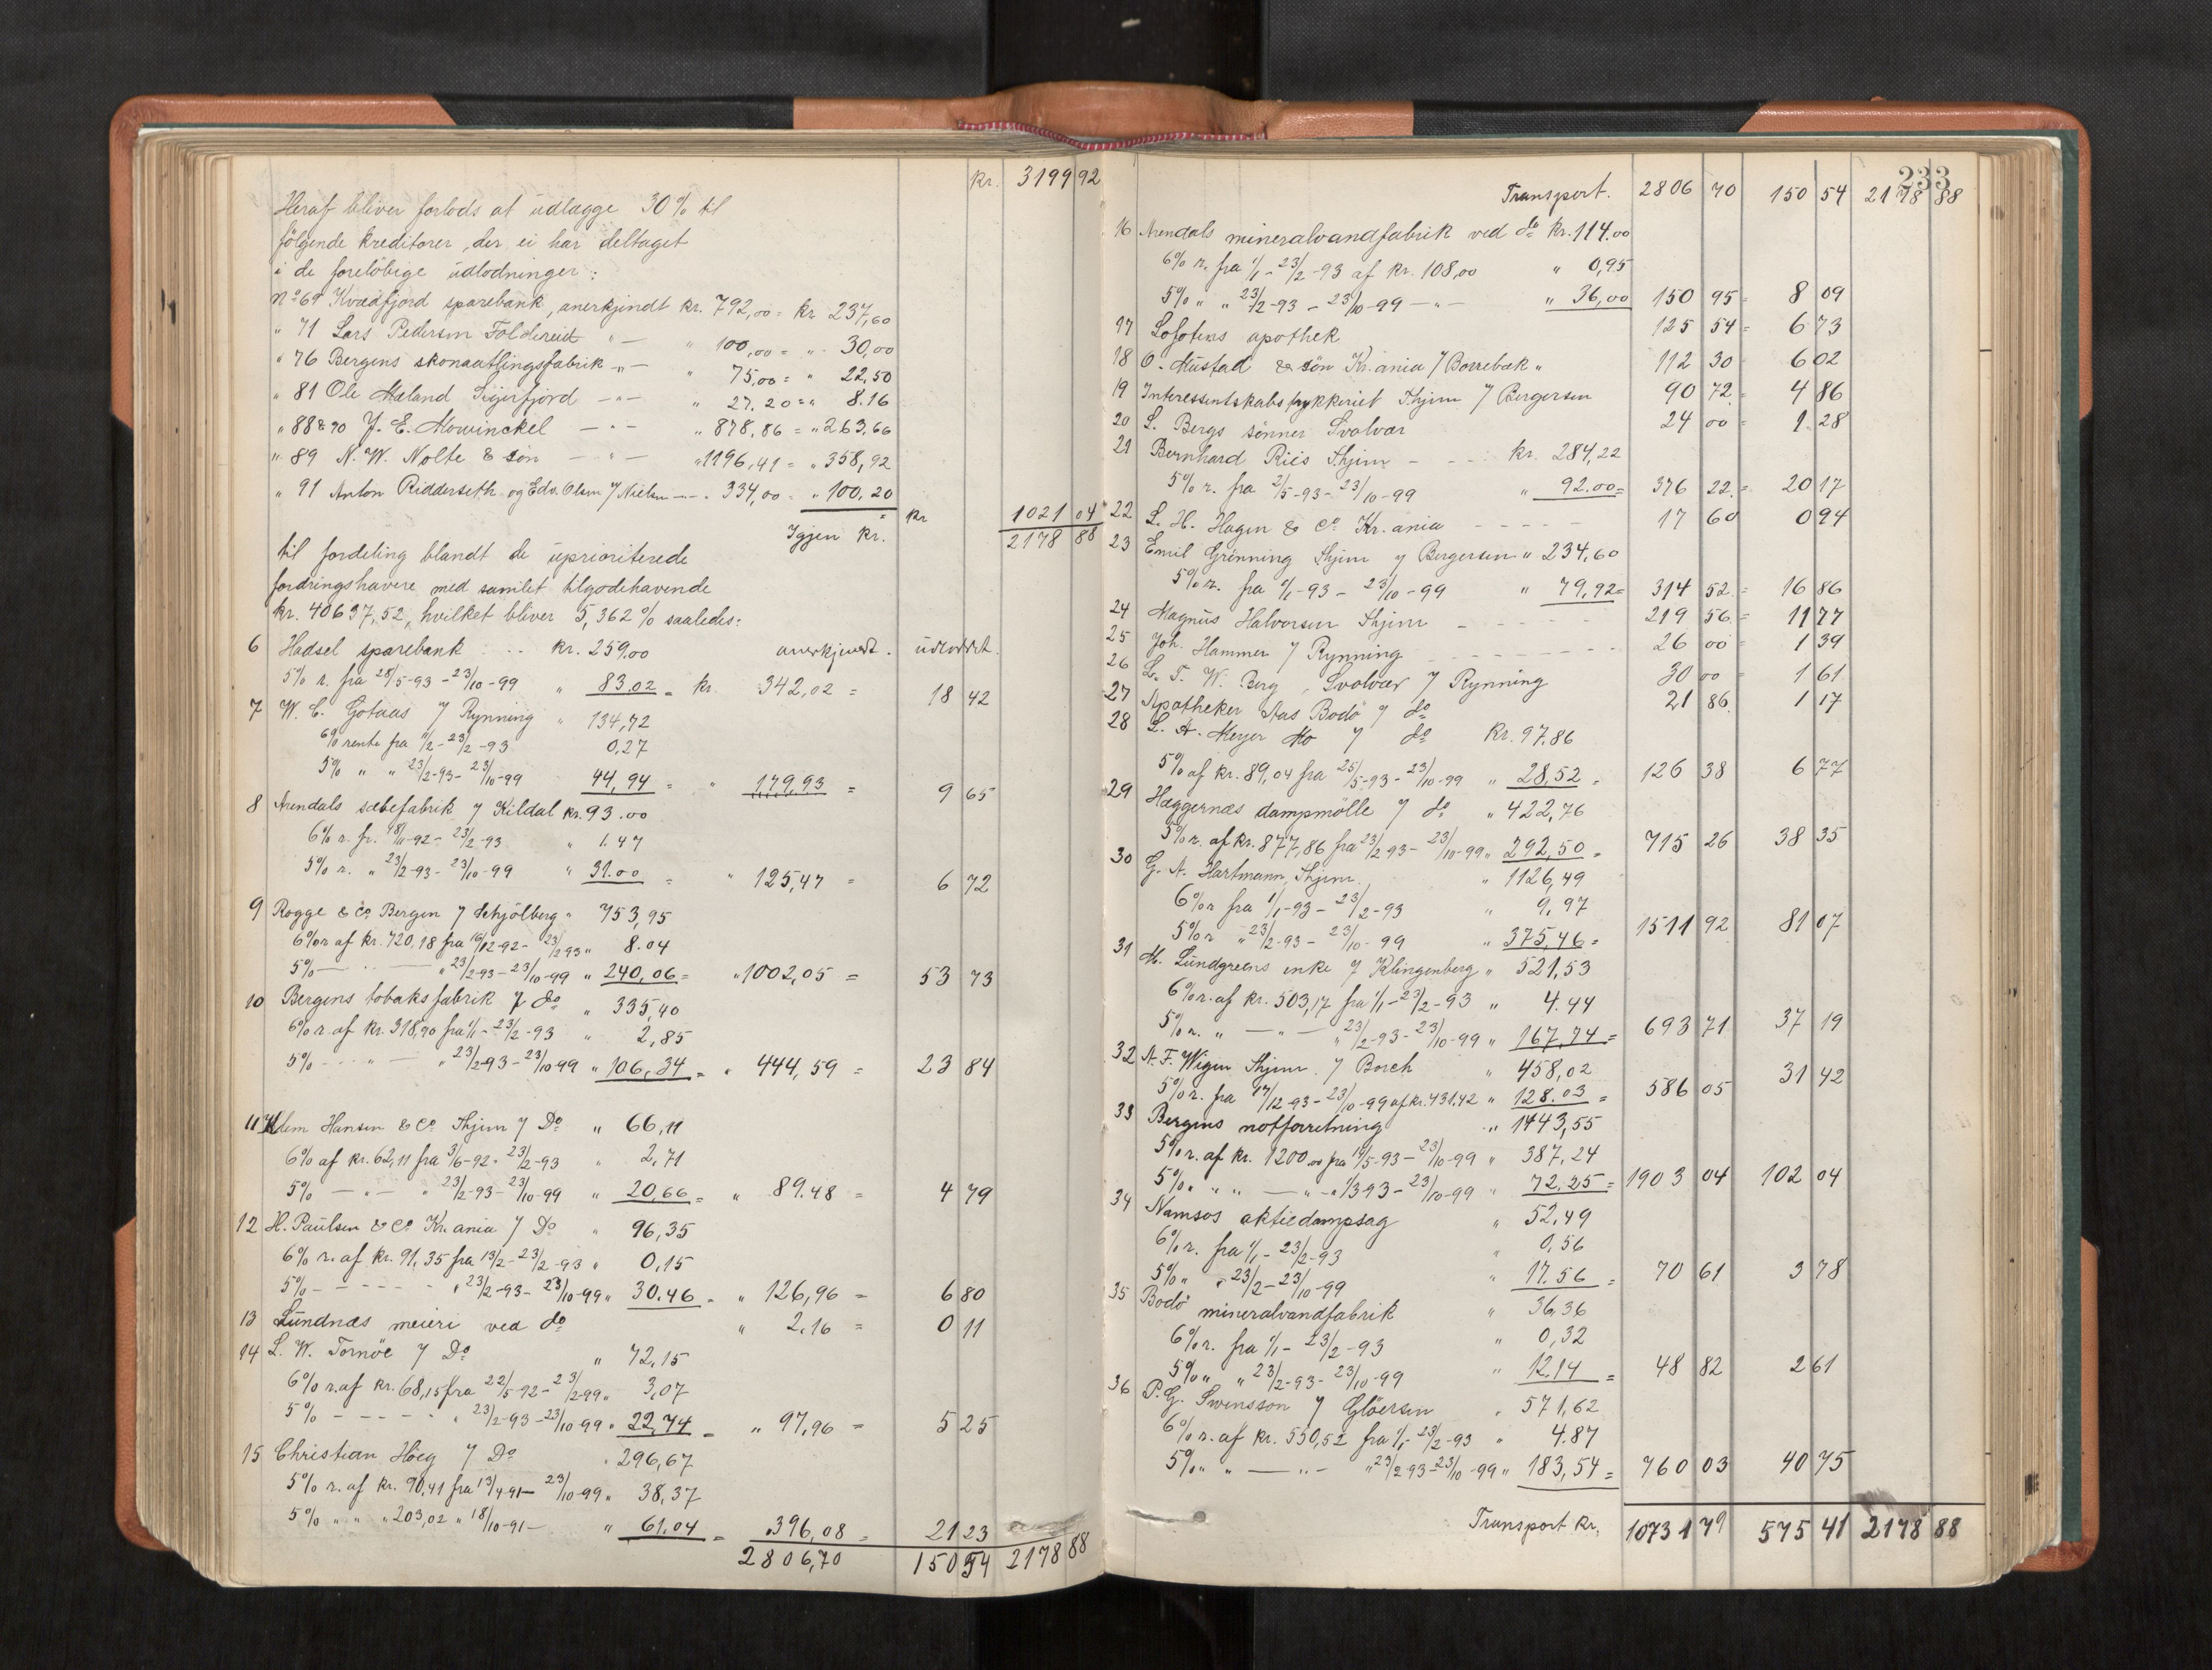 Kr. 3199 92
Heraf bliver forlods at udlægge 30% til
følgende kreditorer, der ei har deltaget
i de foreløbige udlodninger:
No 69 Kvædfjord sparebank, anerkjendt kr. 792,00 = kr. 237,60
" 71 Lars Pedersen Foldereid " — " 100,00 = " 30,00
" 76 Bergens skomaatlingsfabrik -"- " 75,00 = " 22,50
" 81 Ole Mæland Sigerfjord -"- " 27.20 = " 8.16
" 88 & 90 J. E. Mowinckel -"- " 878,86 = " 263,66
" 89 N. W. Nolte & søn -"- " 1196,41 = " 358,92
" 91 Anton Ridderseth og Edv. Olsen / Nielsen - " - 334,00 = " 100,20
kr 1021 04
Igjen kr. 2178 88
til fordeling blandt de uprioriterede
fordringshavere med samlet tilgodehavende
kr. 40637,52, hvilket bliver 5,362% saaledes:
anerkjendt. udloddet.
6 Hadsel sparebank kr. 259.00
5% r. fra 28/5-93 - 23/10-99 " 83.02 = kr. 342,02 = 18 42
7 W. C. Gotaas / Rynning " 134,72
6% rente fra 1/2 - 23/2-93 0,27
5% " " 23/2-93 - 23/10-99 44,94 = " 179,93 = 9 65
8 Arendals sæbefabrik / Kildal kr. 93.00
6% r. fr. 18/11-92 - 23/2-93 " 1.47
5% r. " 23/2-93 - 23/10-99 " 31.00 = " 125,47 = 6 72
9 Rogge & Co Bergen / Schjölberg " 753,95
6% r af kr. 720,18 fra 16/12-92 - 23/2 93 " 8.04
5% — " — " 23/2-93 - 23/10-99 " 240,06 = " 1002,05 = 53 73
10 Bergens tobaksfabrik / do " 335,40
6% r. af kr. 318,90 fra 1/1 - 23/2-93 " 2,85
5% - - " — " 23/2-93 - 23/10 99 " 106,34 = " 444,59 = 23 84
11 Klem Hansen & Co Thjem / Do " 66,11
6% af kr. 62,11 fra 3/6-92 - 23/2-93 " 2,71
5% — " — " 23/2-93 - 23/10-99 " 20,66 = " 89.48 = 4 79
12 H. Paulsen & Co Kr.ania / Do " 96,35
6% r. af kr. 91,35 fra 13/2 - 23/2-93 " 0,15
5% - - - - - " 23/2-93 - 23/10-99 " 30.46 = " 126,96 = 6 80
13 Lundnæs meieri ved do " 2.16 = 0 11
14 L. W. Tornöe / Do " 72,15
6% r. af kr. 68,15 fra 22/5-92 - 23/2-99 " 3,07
5% - - - - - " 23/2-93 - 23/10-99 " 22,74 = " 97,96 = 5 25
15 Christian Höeg / Do " 296,67
5% r. af kr. 90,41 fra 13/4-91 - 23/10-99 " 38,37
5% " " " 203,02 " 18/10-91 - " 61.04 = " 396,08 = 21 23
2806,70 150 54 2178 88
233
Transport. 2806 70 150 54 2178 88
16 Arendals mineralvandfabrik ved do kr. 114.00
6% r. fra 1/1 - 23/2-93 af kr. 108,00 " 0,95
5% " " 23/2-93 - 23/10-99 - " - " 36,00 150 95 = 8 09
17 Lofotens apothek 125 54 = 6 73
18 O. Mustad & sön Kr.ania / Borrebæk " 112 30 6 02
19 Interessentskabstrykkeriet Thjem / Bergersen 90 72 = 4 86
20 L. Bergs sønner Svolvær 24 00 = 1 28
21 Bernhard Riis Thjem - - - kr. 284,22
5% r. fra 2/5-93 - 23/10-99 " 92.00 = 376 22 = 20 17
22 L. H. Hagen & Co Kr.ania - - - - 17 60 0 94
23 Emil Grønning Thjem / Bergersen " 234,60
5% r. fra 1/1-93 - 23/10-99 " 79,92 = 314 52 = 16 86
24 Magnus Halvorsen Thjem - - - - 219 56 = 11 77
25 Joh. Hammer / Rynning - - - - 26 00 = 1 39
26 L. F. W. Berg, Svolvær / Rynning 30 00 = 1 61
27 Apotheker Aas Bodö / do 21 86 1 17
28 L. A. Meyer Mo / do kr. 97.86
5% af kr. 89,04 fra 25/5-93 - 23/10-99 " 28,52 = 126 38 6 77
29 Hæggernæs dampmölle / do " 422,76
5% r. af kr. 877,86 fra 23/2 93 - 23/10-99 " 292,50 = 715 26 38 35
30 G. A. Hartmann, Thjem. " 1126,49
6% r fra 1/1-93 - 23/2-93 " 9,97
5% r " 23/2-93 - 23/10-99 " 375,46 = 1511 92 81 07
31 M. Lundgreens enke / Klingenberg " 521,53
6% r. af kr. 503,17 fra 1/1 - 23/2-93 " 4.44
5% r. " — " — " 23/2-93 - 23/10-99 " 167,74 = 693 71 37 19
32 A. F. Wigen Thjem / Borch " 458,02
5% r. fra 17/12-93 - 23/10-99 af kr. 431.42 " 128.03 = 586 05 31 42
33 Bergens notforretning " 1443,55
5% r. af kr. 1200.00 fra 14/5-93 - 23/10-99 " 387.24
5% " " " — " - " 1/3 93 - 23/10-99 " 72.25 = 1903 04 102 04
34 Namsos aktiedampsag " 52,49
6% r. fra 1/1 - 23/2-93 " 0,56
5% " " 23/2 - 23/10-99 " 17.56 = 70 61 3 78
35 Bodö mineralvandfabrik " 36,36
6% r. fra 1/1 - 23/2-93 " 0,32
5% " " 23/2-93 - 23/10-99 " 12.14 = 48 82 2 61
36 P. G. Svensson / Glöersen " 571,62
6% r. af kr. 550,52 fra 1/1 - 23/2-93 " 4.87
5% " " — " - " 23/2 93 - 23/10-99 " 183,54 = 760 03 40 75
Transport kr. 10731 79 575 41 2178 88